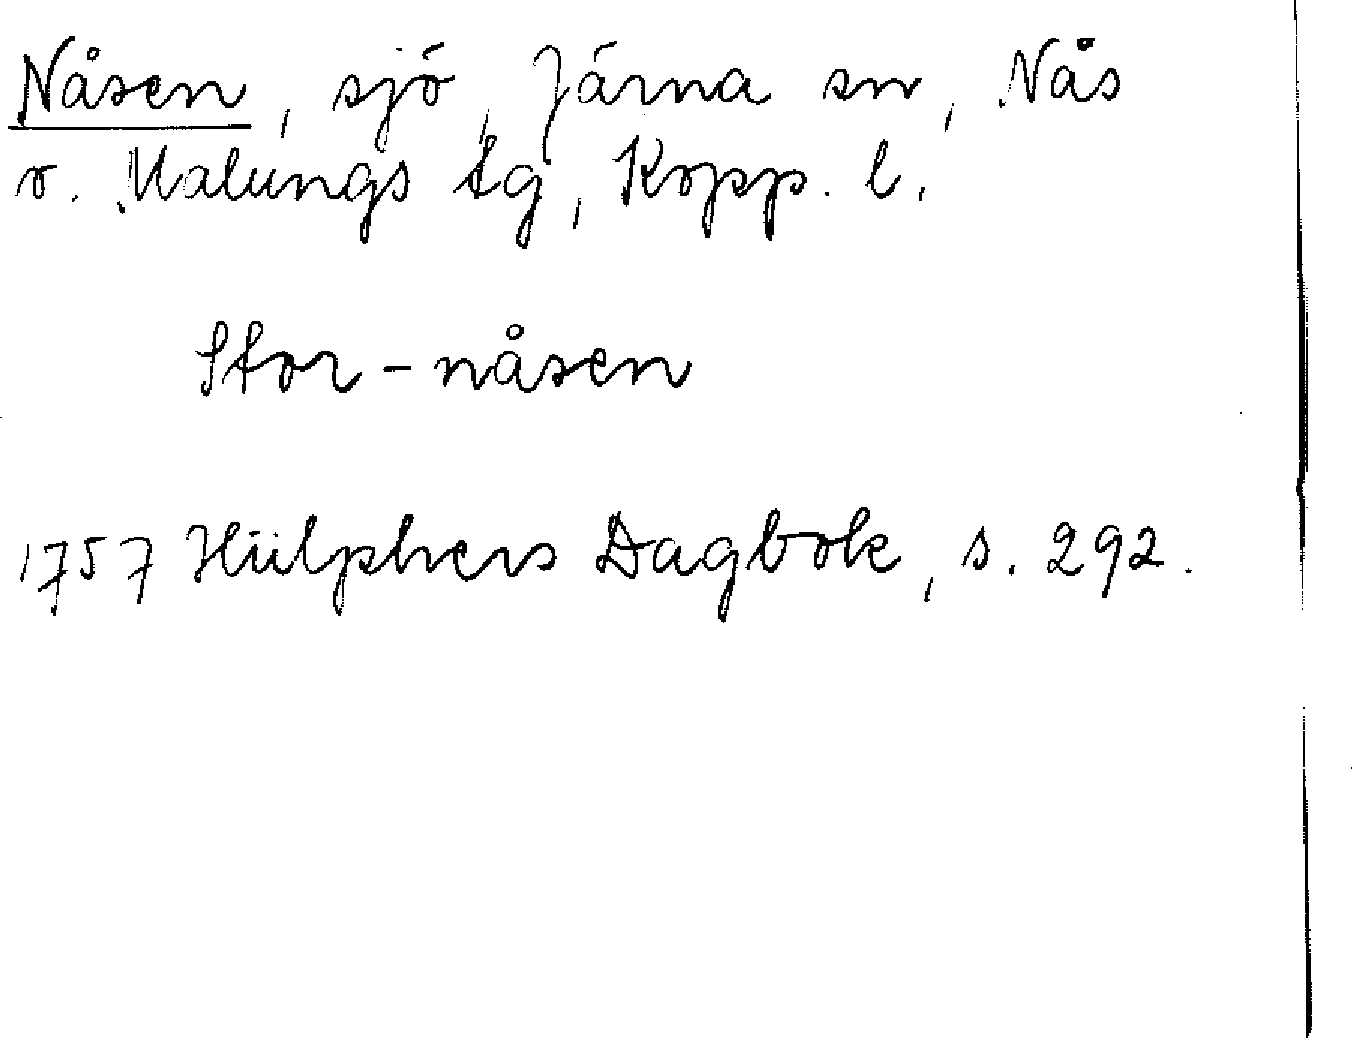 Nåsen, sjö, Järna sn, Nås
o. Malungs tg, Kopp. l.
Stor-nåsen
1757 Hülphers Dagbok, s. 292.